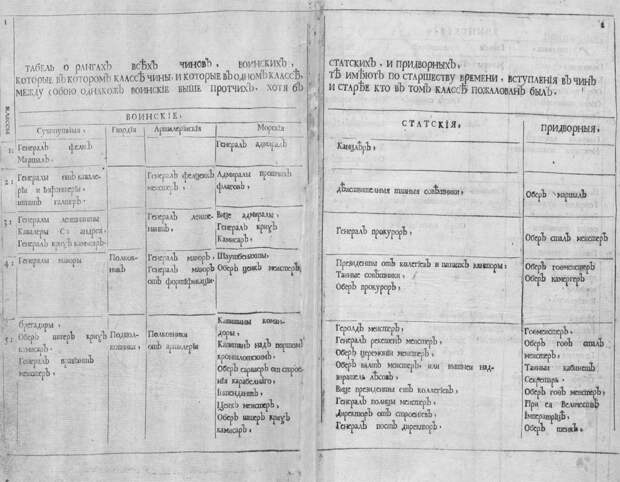 ТАБЕЛЬ О РАНГАХЪ ВСѢХЪ ЧИНОВЪ, ВОИНСКИХЪ,
КОТОРЫЕ ВЪ КОТОРОМЪ КЛАССѢ ЧИНЫ, И КОТОРЫЕ ВЪ ОДНОМЪ КЛАССѢ,
МЕЖДУ СОБОЮ ОДНАКОЖЪ ВОИНСКІЕ ВЫШЕ ПРОТЧИХЪ, ХОТЯ БЪ
КЛАССЫ
ВОИНСКІЕ.
Сухопутныя,
Гвардіи
Артилерійскія
Морскія
1:
Генералъ фелтъ
Маршалъ.
Генералъ адмиралъ
2:
Генералы отъ кавале
ріи и інфантеріи,
штатъ галтеръ.
Генералъ фелцеихъ
мейстеръ,
Адмиралы протчихъ
флаговъ,
3:
Генералы леитенанты
Кавалеры Ст андрея.
Генералъ кригсъ камисаръ.
Генералъ леите-
нантъ.
Вице адмиралы,
Генералъ кригсъ
Камисаръ,
4:
Генералы маіоры
Полков-
никъ
Генералъ маіоръ,
Генералъ маіоръ
отъ фортификаціи
Шаутбенахты
Оберъ цеихъ меистеръ,
5:
брегадиры,
Оберъ штеръ кригсъ
камисаръ.
Генералъ
меистеръ,
Подпол-
ковники,
Полковники
отъ артилеріи
Капитаны коман-
доры,
Капитанъ надъ портомъ
кроншлотскимъ,
Оберъ сарваеръ отъ строе
нія карабелнаго,
Інтендантъ,
Цеихъ меистеръ,
Оберъ штеръ кригсъ
камисаръ,
СТАТСКИХЪ, И ПРИДВОРНЫХЪ,
ТѢ ИМѢЮТЪ ПО СТАРШЕСТВУ ВРЕМЕНИ, ВСТУПЛЕНІЯ ВЪ ЧИНЪ
И СТАРѢЕ КТО ВЪ ТОМЪ КЛАССѢ ПОЖАЛОВАНЪ БЫЛЪ.
СТАТСКІЯ,
ПРИДВОРНЫЯ,
Канцлеръ,
дѣиствителныя таиныя совѣтники,
Оберъ маршалъ
Генералъ прокуроръ,
Оберъ сталъ меистеръ
Президенты отъ колегіевъ и штатсъ канторы
Таиные совѣтники,
Оберъ прокуроръ,
Оберъ гофмеистеръ
Оберъ камергеръ
Герольдъ меистеръ,
Генералъ рекетенъ меистеръ,
Оберъ церемоніи меистеръ,
Оберъ валтъ меистеръ или вышнеи над-
зиратель лѣсовъ,
Вице президенты отъ коллегіевъ
Генералъ полицы меистеръ,
Директоръ отъ строенеи,
Генералъ постъ директоръ,
Гофмеистеръ,
Оберъ гофъ сталъ
меистеръ,
Таиныи кабинетъ
Секретарь
Оберъ гофъ меистеръ,
При ея Величествѣ
Імператрицѣ,
Оберъ шенкъ,